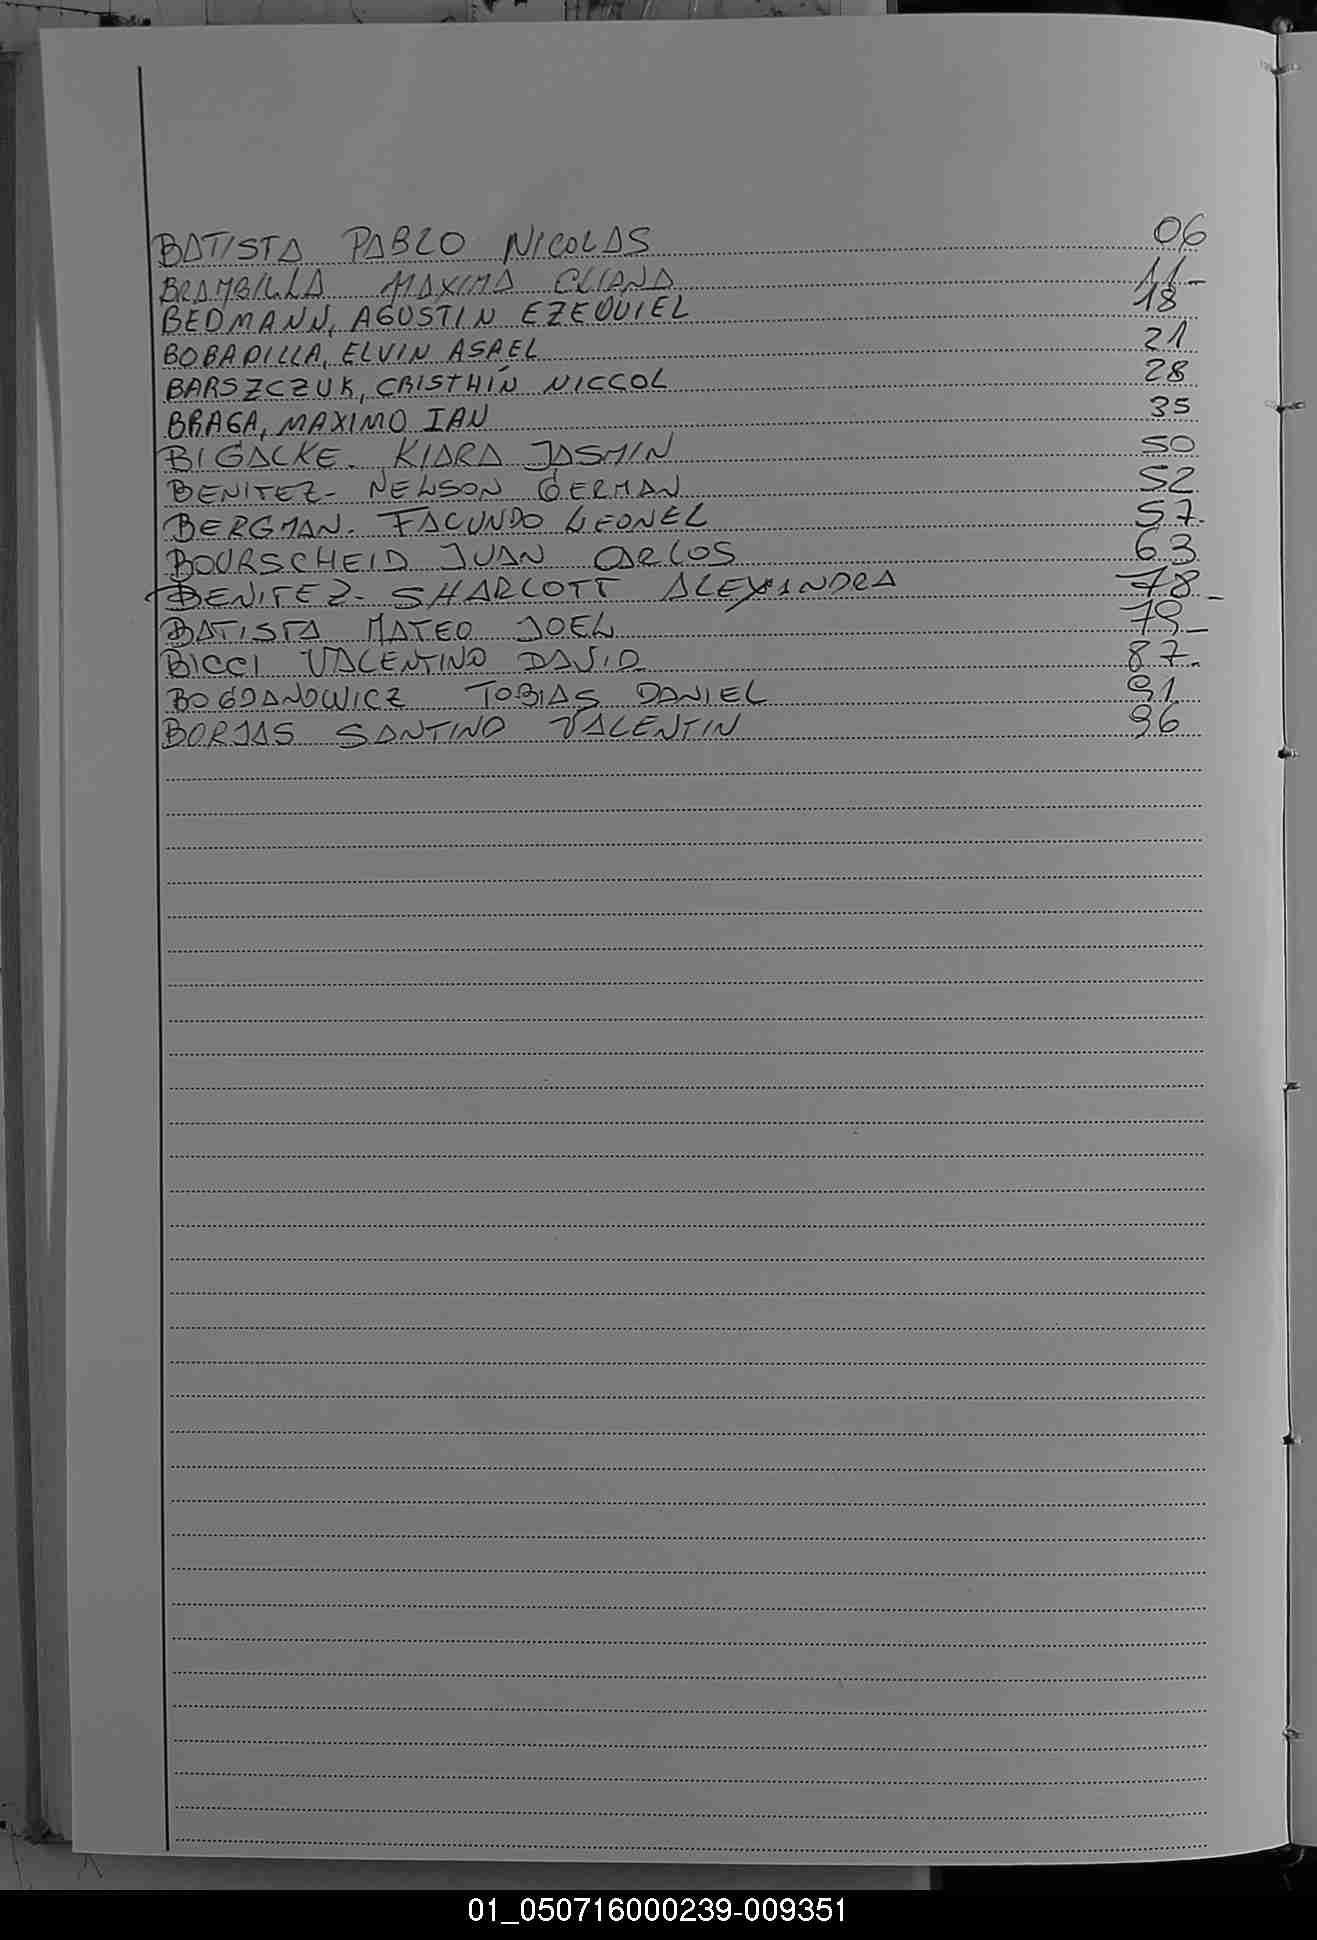 BATISTA PABLO NICOLAS 06
BRAMBILLA MAXIMA ELIANA 11-
BEDMANN, AGUSTIN EZEQUIEL 18
BOBADILLA, ELVIN ASAEL 21
BARSZCZUK, CRISTHIN NICCOL 28
BRAGA, MAXIMO IAN 35
BIGACKE. KIARA JASMIN 50
BENITEZ- NELSON GERMAN 52
BERGMAN. FACUNDO LEONEL 57.
BOURSCHEID JUAN CARLOS 63
BENITEZ- SHARLOTT ALEXANDRA 78-
BATISTA MATEO JOEL 79-
BICCI VALENTINO DAVID 87.
BOGDANOWICZ TOBIAS DANIEL 91
BORJAS SANTINO VALENTIN 96
01_050716000239-009351